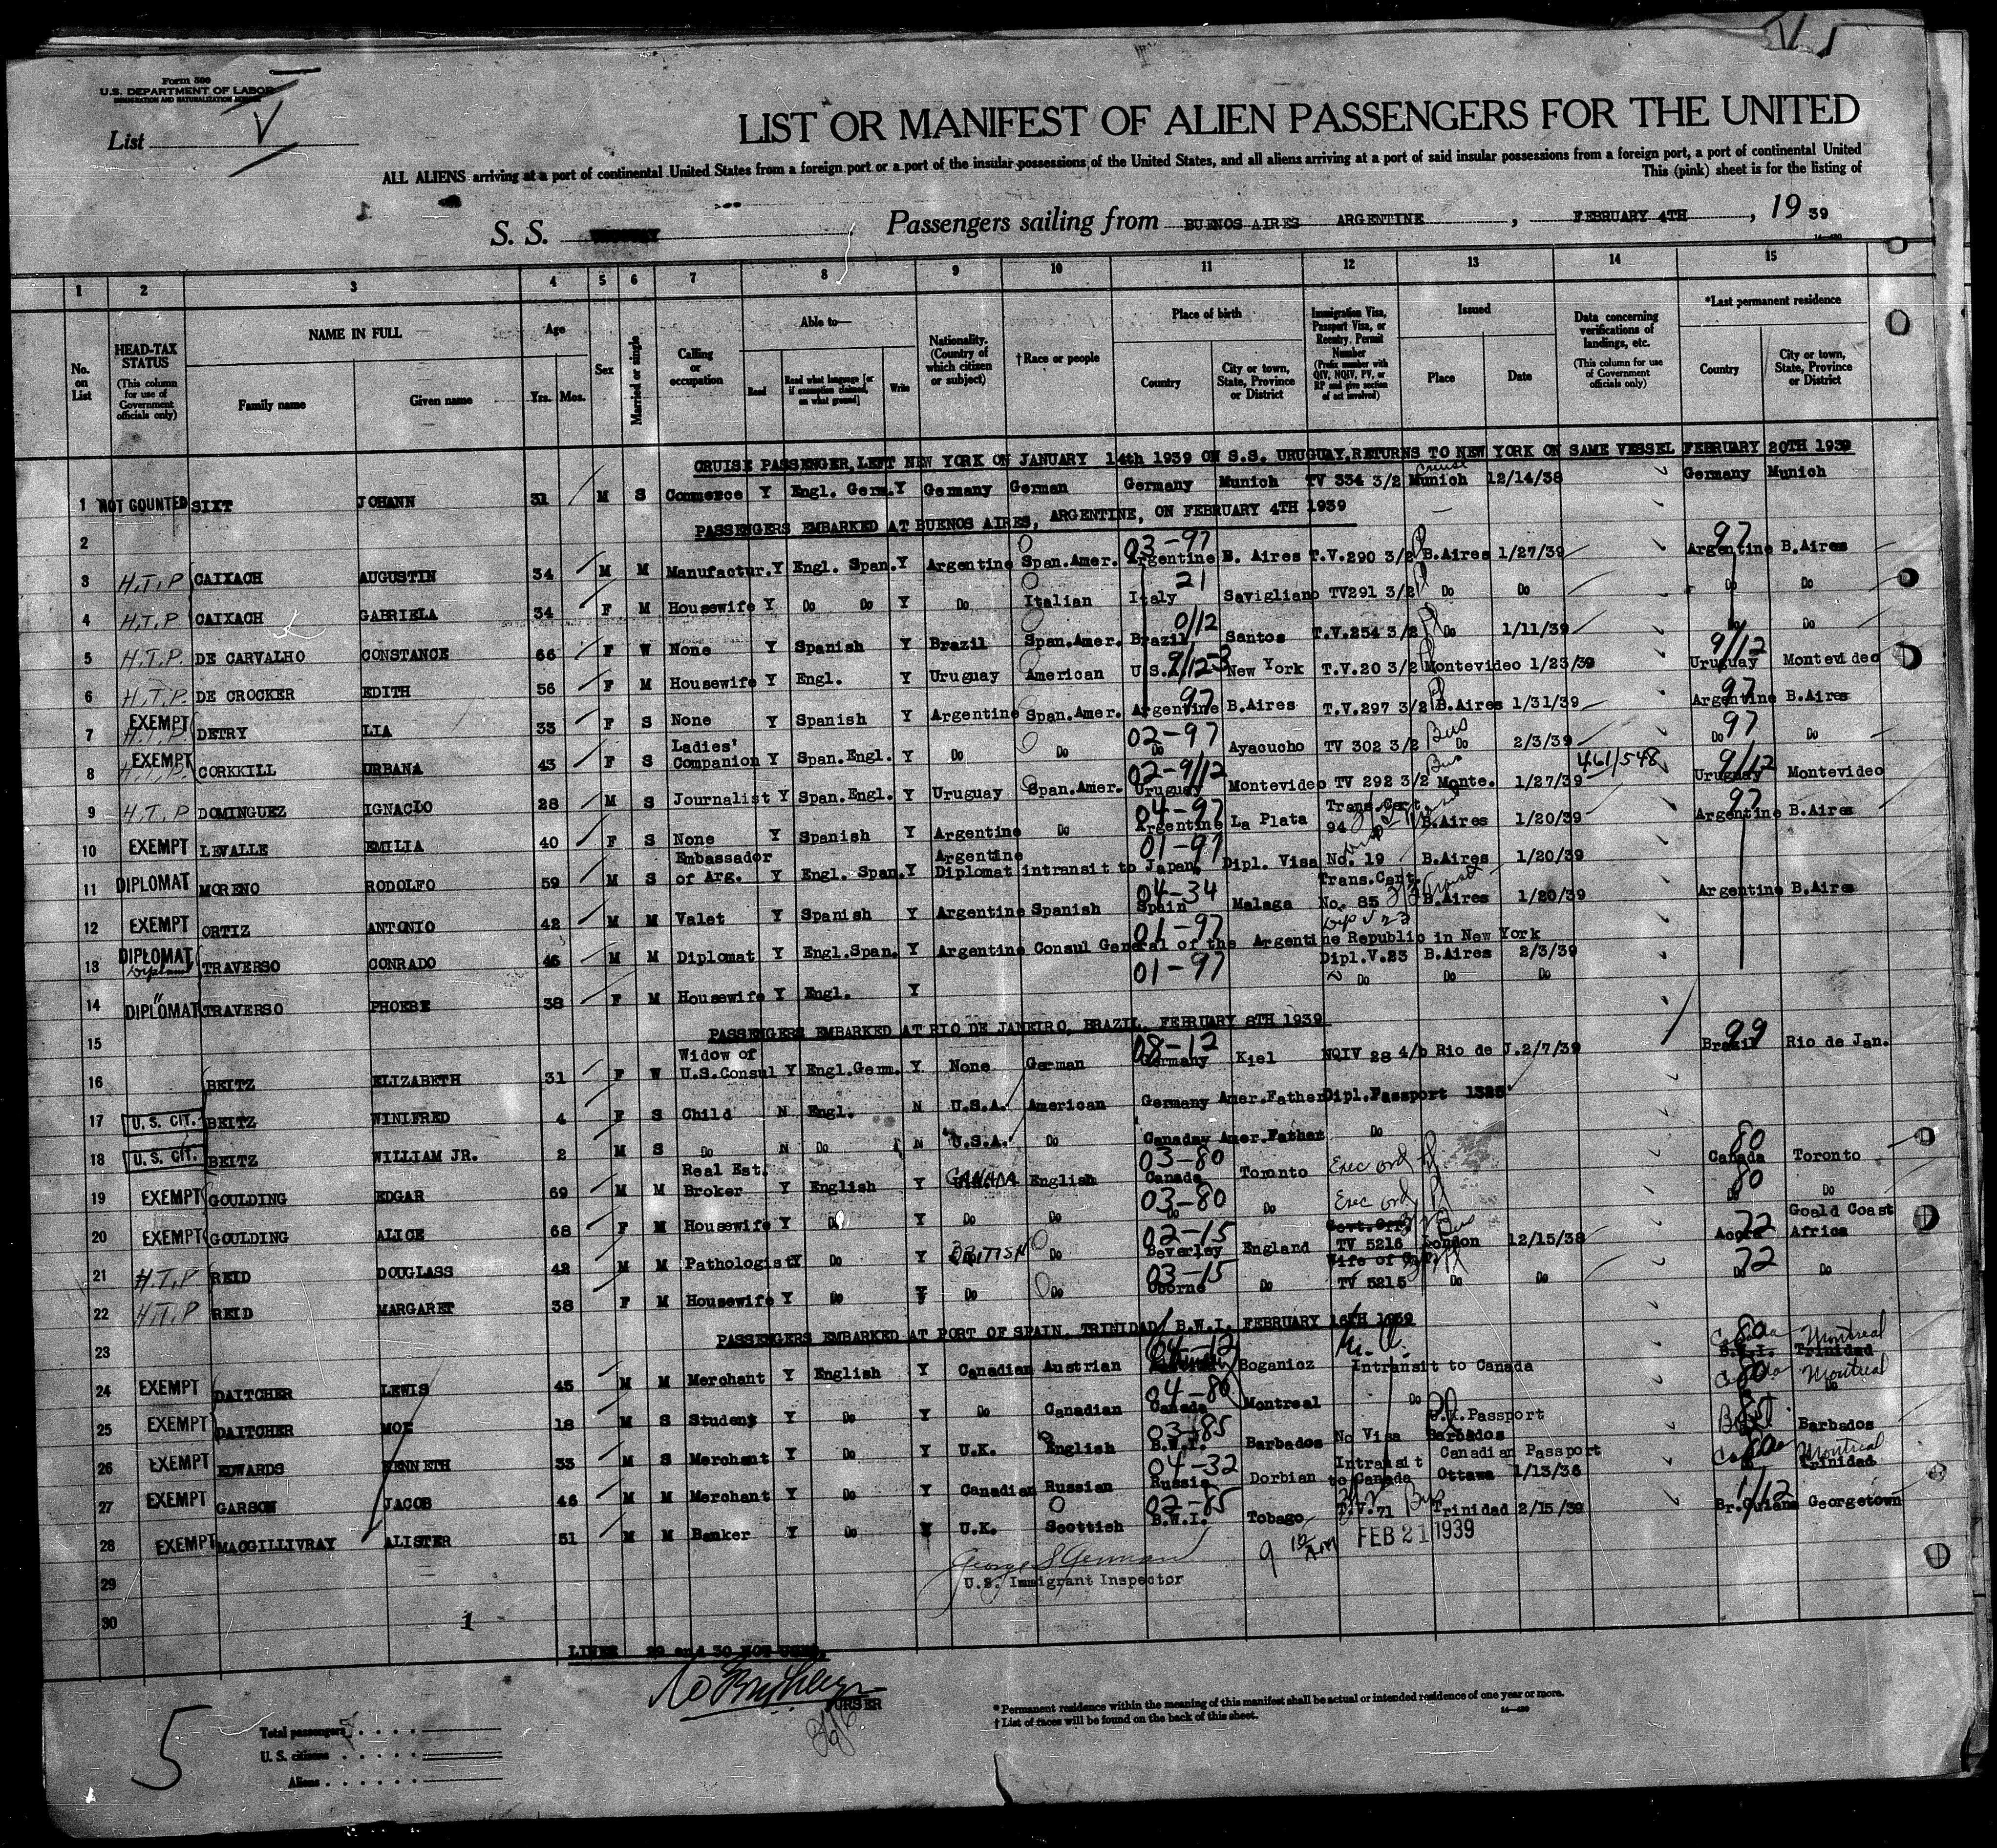 Form 500
U.S. DEPARTMENT OF LABOR
IMMIGRATION AND NATURALIZATION SERVICE
List V
LIST OR MANIFEST OF ALIEN PASSENGERS FOR THE UNITED
ALL ALIENS arriving at a port of continental United States from a foreign port or a port of the insular possessions of the United States, and all aliens arriving at a port of said insular possessions from a foreign port, a port of continental United
This (pink) sheet is for the listing of
S. S. Passengers sailing from BUENOS AIRES ARGENTINE, FEBRUARY 4TH, 19 39
1 2 3 4 5 6 7 8 9 10 11 12 13 14 15
No. on List
HEAD-TAX STATUS (This column for use of Government officials only)
NAME IN FULL Family name Given name
Age Yrs. Mos.
Sex
Married or single
Calling or occupation
Able to— Read Read what language [or if exemption claimed, on what ground] Write
Nationality. (Country of which citizen or subject)
†Race or people
Place of birth Country City or town, State, Province or District
Immigration Visa, Passport Visa, or Reentry Permit Number (Prefix number with QIV, NQIV, PV, or RP and give section of act involved)
Issued Place Date
Data concerning verifications of landings, etc. (This column for use of Government officials only)
*Last permanent residence Country City or town, State, Province or District
CRUISE PASSENGER, LEFT NEW YORK ON JANUARY 14th 1939 ON S.S. URUGUAY, RETURNS TO NEW YORK ON SAME VESSEL FEBRUARY 20TH 1939
1 NOT COUNTED SIXT JOHANN 31 M S Commerce Y Engl. Germ. Y Germany German Germany Munich TV 334 3/2 Cruise Munich 12/14/38 Germany Munich
2 PASSENGERS EMBARKED AT BUENOS AIRES, ARGENTINE, ON FEBRUARY 4TH 1939
3 H.T.P CAIXACH AUGUSTIN 34 M M Manufactur. Y Engl. Span. Y Argentine Span.Amer. 03-97 Argentine B. Aires T.V.290 3/2 B.Aires 1/27/39 97 Argentine B.Aires
4 H.T.P CAIXACH GABRIELA 34 F M Housewife Y Do Do Y Do Italian 21 Italy Savigliano TV291 3/2 Do Do Do Do
5 H.T.P. DE CARVALHO CONSTANCE 66 F W None Y Spanish Y Brazil Span.Amer. 0/12 Brazil Santos T.V.254 3/2 Do 1/11/39 Do Do
6 H.T.P. DE CROCKER EDITH 56 F M Housewife Y Engl. Y Uruguay American U.S. New York T.V.20 3/2 Montevideo 1/23/39 9/12 Uruguay Montevideo
7 EXEMPT H.T.P DETRY LIA 33 F S None Y Spanish Y Argentine Span.Amer. 97 Argentine B.Aires T.V.297 3/2 B.Aires 1/31/39 97 Argentine B.Aires
8 EXEMPT H.T.P. CORKKILL URBANA 43 F S Ladies' Companion Y Span.Engl. Y Do Do 02-97 Do Ayacucho TV 302 3/2 Bus Do 2/3/39 97 Do Do
9 H.T.P DOMINGUEZ IGNACIO 28 M S Journalist Y Span.Engl. Y Uruguay Span.Amer. 02-9/12 Uruguay Montevideo TV 292 3/2 Bus Monte. 1/27/39 461/548 9/12 Uruguay Montevideo
10 EXEMPT LEVALLE EMILIA 40 F S None Y Spanish Y Argentine Do 04-97 Argentine La Plata Trans.Cert. 94 B.Aires 1/20/39 97 Argentine B.Aires
11 DIPLOMAT MORENO RODOLFO 59 M S Embassador of Arg. Y Engl. Span. Y Argentine Diplomat intransit to Japan. 01-97 Dipl. Visa No. 19 B.Aires 1/20/39
12 EXEMPT ORTIZ ANTONIO 42 M M Valet Y Spanish Y Argentine Spanish 04-34 Spain Malaga Trans.Cert. No. 85 B.Aires 1/20/39 Argentine B.Aires
13 DIPLOMAT TRAVERSO CONRADO 46 M M Diplomat Y Engl.Span. Y Argentine Consul General of the Argentine Republic in New York 01-97 Dipl.V.23 B.Aires 2/3/39
14 " DIPLOMAT TRAVERSO PHOEBE 38 F M Housewife Y Engl. Y 01-97 Do Do Do
15 PASSENGERS EMBARKED AT RIO DE JANEIRO, BRAZIL, FEBRUARY 8TH 1939
16 BEITZ ELIZABETH 31 F W Widow of U.S.Consul Y Engl.Germ. Y None German 08-12 Germany Kiel NQIV 28 4/b Rio de J. 2/7/39 99 Brazil Rio de Jan.
17 U.S. CIT. BEITZ WINIFRED 4 F S Child N Engl. N U.S.A. American Germany Amer.Father Dipl.Passport
18 U.S. CIT. BEITZ WILLIAM JR. 2 M S Do N Do N U.S.A. Do Canada Amer.Father Do
19 EXEMPT GOULDING EDGAR 69 M M Real Est. Broker Y English Y CANADA English 03-80 Canada Toronto Exec ord 80 Canada Toronto
20 EXEMPT GOULDING ALICE 68 F M Housewife Y Do Y Do Do 03-80 Do Do Exec ord 80 Do Do
21 H.T.P REID DOUGLASS 42 M M Pathologist Y Do Y BRITISH Do 02-15 Beverley England TV 5216 Bus London 12/15/38 72 Accra Goald Coast Africa
22 H.T.P REID MARGARET 38 F M Housewife Y Do Y Do Do 03-15 Do TV 5215 Do Do 72 Do Do
23 PASSENGERS EMBARKED AT PORT OF SPAIN, TRINIDAD, B.W.I. FEBRUARY 16TH 1939
24 EXEMPT DAITCHER LEWIS 45 M M Merchant Y English Y Canadian Austrian 04-12 Boganioz Intransit to Canada 80 Canada Montreal B.W.I. Trinidad
25 EXEMPT DAITCHER MOE 18 M S Student Y Do Y Do Canadian 04-80 Canada Montreal Do 80 Canada Montreal Do
26 EXEMPT EDWARDS KENNETH 33 M S Merchant Y Do Y U.K. English 03-85 B.W.I. Barbados No Visa U.K.Passport Barbados 85 Barbados
27 EXEMPT GARSON JACOB 46 M M Merchant Y Do Y Canadian Russian 04-32 Russia Dorbian Intransit to Canada Canadian Passport Ottawa 1/13/36 80 Montreal Trinidad
28 EXEMPT MACGILLIVRAY ALISTER 51 M M Banker Y Do Y U.K. Scottish 02-85 B.W.I. Tobago T.V.71 Trinidad 2/15/39 1/12 Br.Guiana Georgetown
FEB 21 1939
George S German
29 U.S. Immigrant Inspector
30 1
LINES 29 and 30 NOT USED.
PURSER
* Permanent residence within the meaning of this manifest shall be actual or intended residence of one year or more.
† List of races will be found on the back of this sheet.
5
Total passengers
U. S. citizens
Aliens